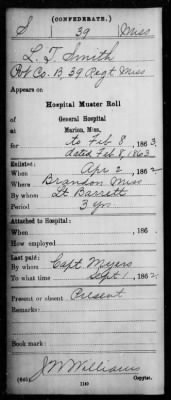 (CONFEDERATE.)
S 39 Miss
L. T. Smith
Pvt Co. B, 39 Regt. Miss
Appears on
Hospital Muster Roll
of
General Hospital
Marion, Miss.,
for to Feb 8, 1863
dated Feb 8, 1863
Enlisted:
When Apr 2, 1862
Where Brandon Miss
By whom Lt Barrett
Period 3 yrs
Attached to Hospital:
When , 186 .
How employed
Last paid:
By whom Capt. Myers
To what time Sept 1, 1862
Present or absent Present
Remarks:
Book mark:
J W Williams
Copyist.